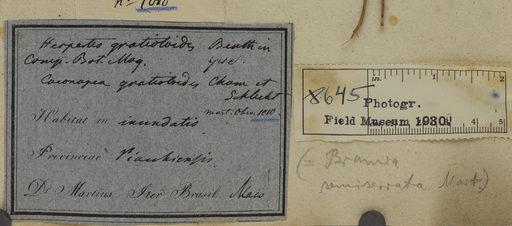 No 1080
Herpestes gratioloides Benth in
Comp. Bot. Mag.
Caconapea gratioloides Cham et
Schlecht
Mart. Obs. 1080.
Habitat in inundatis
Provinciae Piauhiensis.
Dr Martius Iter Brasil. Maio
in. 1 2
8645 Photogr.
Field Museum 1980
4 5
(= Bramia
semiserrata Mart.)